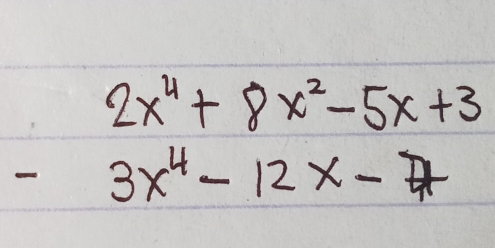 2x⁴ + 8x² - 5x + 3
- 3x⁴ - 12x -